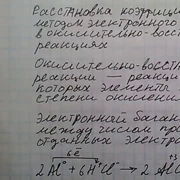 Расстановка коэффици
методом электронного
в окислительно-восст
реакциях
Окислительно-восста
реакции — реакци
которых элементы
степени окислени
Электронный балан
между числом пр
отданных электро
6ē
2Al⁰ + 6H⁺Cl⁻ → 2 Al⁺³Cl